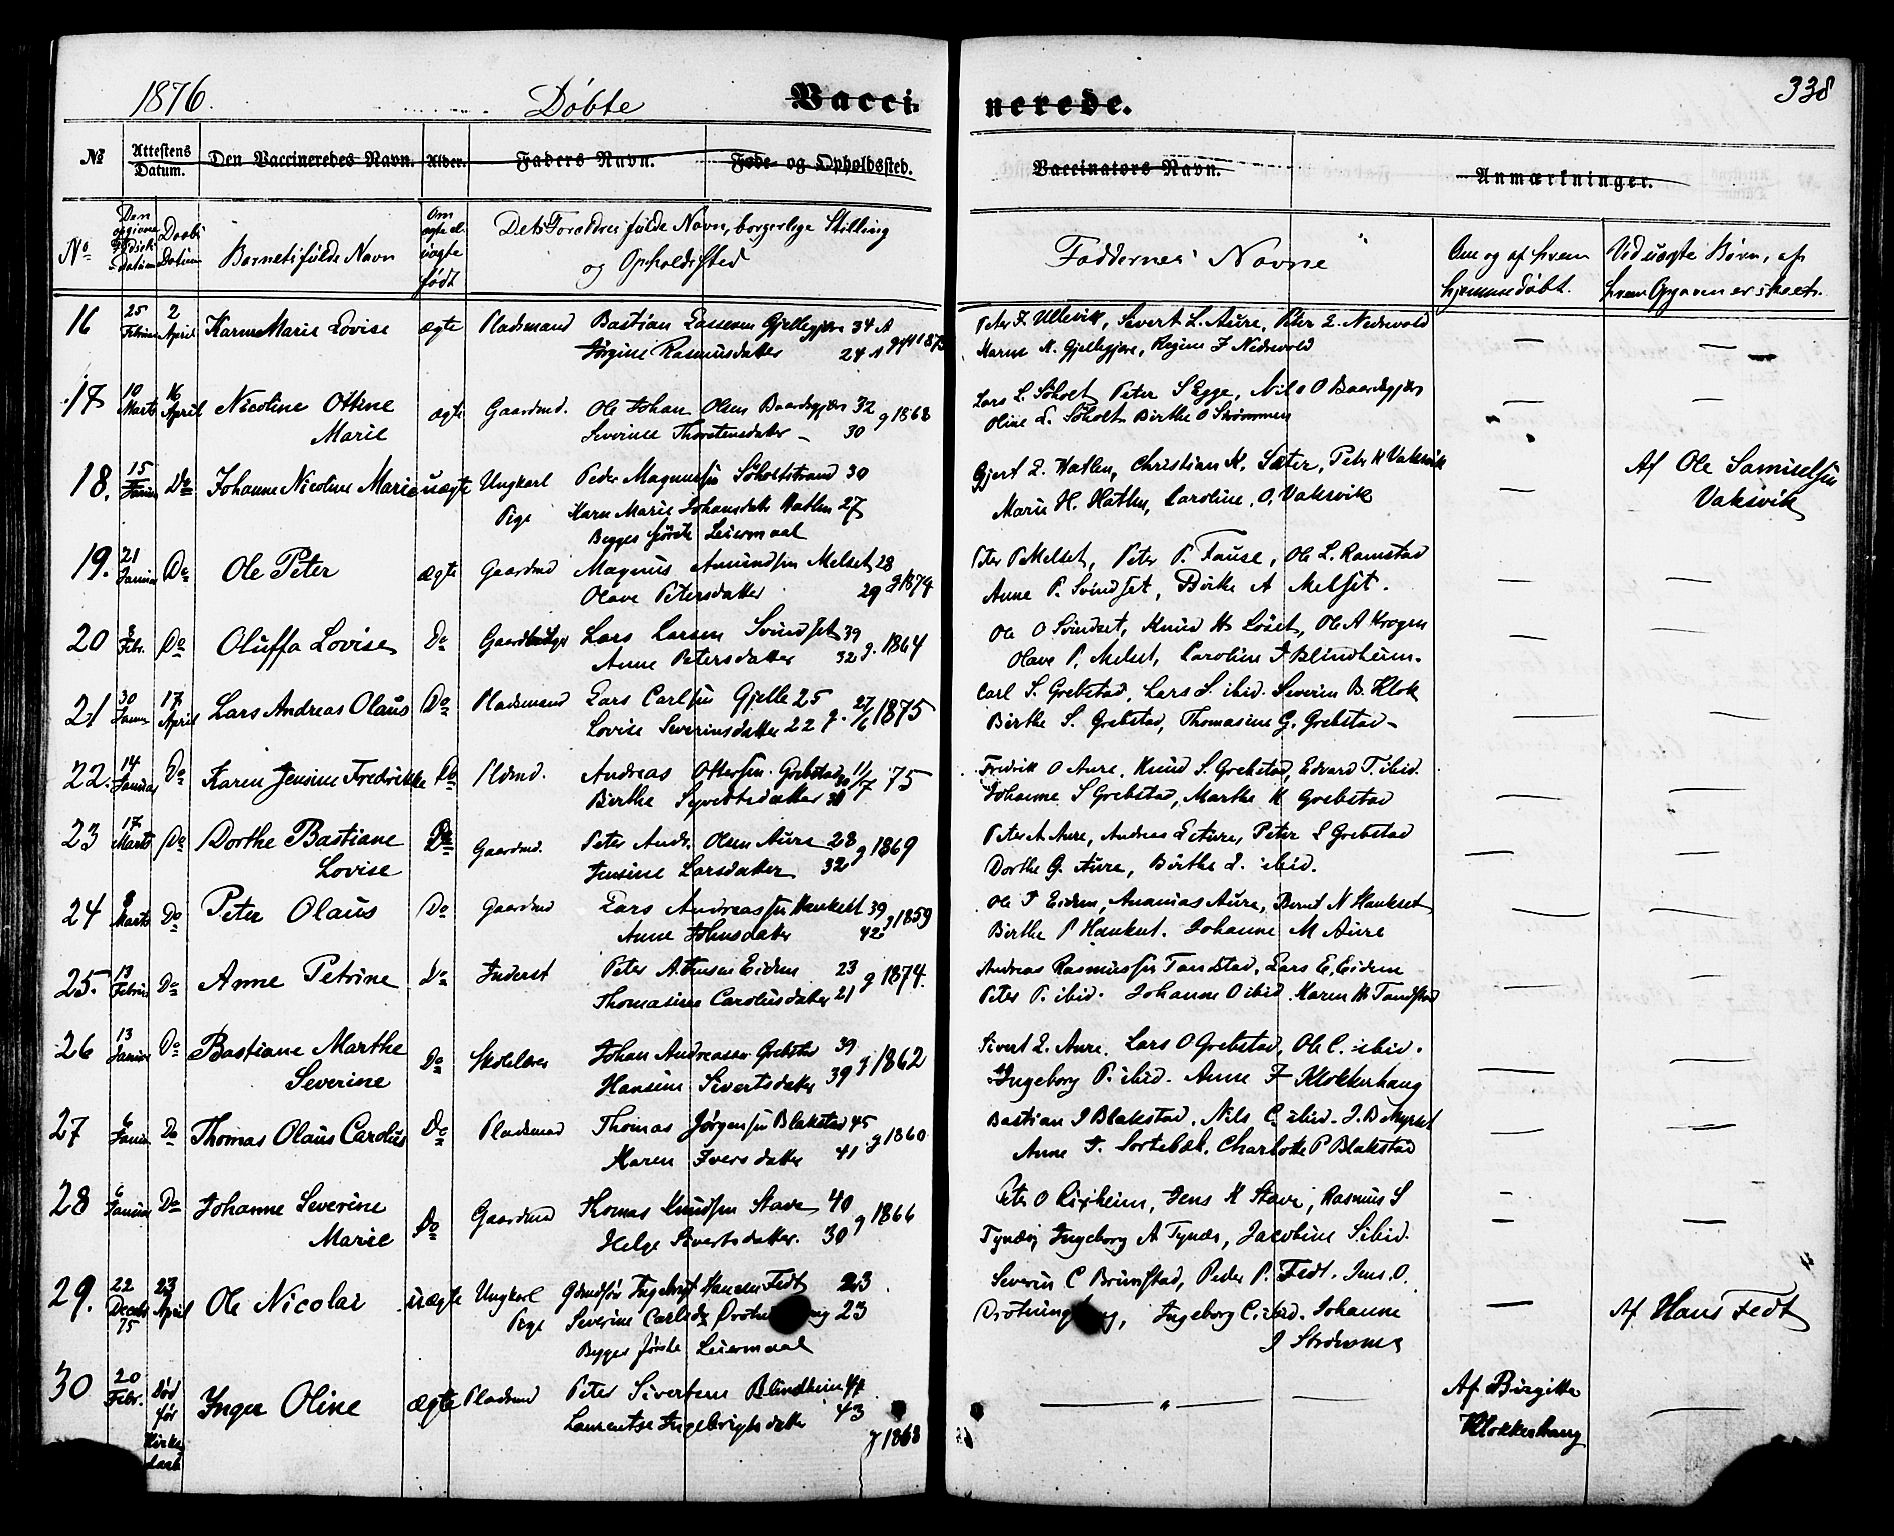 1876. Døbte Vaccinerede. 338
No Attestens Datum. Den Vaccineredes Navn. Alder. Faders Navn. Føde- og Opholdssted. Vaccinators Navn. Anmærkninger.
No Den Daabs Datum Barnets fulde Navn Om ægte el. uægte født Dets Forældres fulde Navn, borgerlige Stilling og Opholdsted Faddernes Navne Om og af hvem hjemmedøbt. Ved uægte Børn, af hvem Opgaven er skeet.
16 25 Februar 2 April Karen Marie Lovise ægte Pladsmand Bastian Lassesen Gjellegjære 34 A
Jørgine Rasmusdatter 24 A
Peter J. Ullevik, Sivert L. Aure, Peter L. Nedrevold
Karen K. Gjellegjære, Regine J Nedrevold
17 10 Marts 16 April Nicoline Ottine Marie ægte Gaardmd. Ole Johan Olsen Baardsgjære 32 g 1868
Severine Thorstensdatter 30
Lars L. Søholt Peter S Egge, Nils O Baardsgjære
Oline L. Søholt Birthe O Strømmen
18. 15 Januar Do Johanne Nicoline Marie uægte Ungkarl Peder Magnussen Søholtstrand 30
Pige Karn Marie Johansdatr Hatlen 27
Begges første Leiermaal
Gjert L. Hatlen, Christian K. Sæter, Peter K Vaksvik
Marie H. Hatlen, Caroline O. Vaksvik
Af Ole Samuelsen Vaksvik
19. 21 Januar Do Ole Peter ægte Gaardmd Magnus Amundsen Melset 28
Olave Petersdatter 29 g 1874
Peter P Melset, Peter P. Fause, Ole L. Ramstad
Anne P. Svindset, Birthe A Melset.
20 8 Febr. Do Oluffa Lovise Do Gaardbruger Lars Larsen Svindset 39
Anne Petersdatter 32 g. 1864
Ole O Svindset, Knud H. Løset, Ole A Krogen
Olave P. Melset, Caroline J Blindheim.
21 30 Janr 17 April Lars Andreas Olaus Do Pladsmand Lars Carlsen Gjelle 25
Lovise Severinsdatter 22 g. 27/6 1875
Carl S. Grebstad, Lars S. ibid. Severin B. Klok
Birthe S. Grebstad, Thomasine G. Grebstad
22. 14 Januar Do Karen Jensine Fredrikke Do Pldmd. Andreas Ottersen Grebstad 11/7 75
Birthe Syvertsdatter 30
Fredrik O Aure. Knud S. Grebstad, Edvard T. ibid.
Johanne S Grebstad, Marthe K Grebstad
23 17 Marts Do Dorthe Bastiane Lovise Do Gaardmd. Peter Andr. Olsen Aure 28 g 1869
Jensine Larsdatter 32
Peter A Aure, Andreas L Aure, Peter S Grebstad
Dorthe G. Aure, Birthe L. ibid.
24 8 Marts Do Peter Olaus Do Gaardmd Lars Andreassen Haukset 39 g 1859
Anne Johnsdatter 42
Ole J Eidem, Ananias Aure, Bernt N Haukset
Birthe P Haukset. Johanne M Aure
25. 13 Februar Do Anne Petrine Do Inderst Peter A. Jensen Eidem 23 g 1874.
Thomasine Carolusdatter 21
Andreas Rasmussen Tandstad, Lars E. Eidem
Peter P. ibid. Johanne O ibid. Karen H Tandstad
26 13 Januar Do Bastiane Marthe Severine Do Skolelærer Johan Andreassen Grebstad 39
Hansine Sivertsdatter 39 g 1862
Sivert L. Aure. Lars O Grebstad, Ole C. ibid.
Ingeborg P. ibid. Anne J Klokkerhaug
27 6 Januar Do Thomas Olaus Carolus Do Pladsmand Thomas Jørgensen Blakstad 45
Karen Iversdatter 41 g 1860
Bastian J Blakstad. Nils C. ibid. J. B Myrset
Anne J. Sortebæk. Charlotte P Blakstad
28 6 Januar Do Johanne Severine Marie Do Gaardmd Thomas Knudsen Stave 40 g 1866
Helge Sivertsdatter. 30
Peter O Kirkeim, Jens K Stave, Rasmus S
Tynæs, Ingeborg A Tynæs, Jacobine S ibid.
29. 22 Decebr 75 23 April Ole Nicolai uægte Ungkarl Gdmdsøn Ingebrigt Hansen Fedt 23
Pige Severine Carlsdr 23
Begges første Leiermaal
Severin C Brunstad, Peder P. Fedt. Jens O.
Ingeborg C. ibid. Johanne
J Strømme
Af Hans Fedt
30 20 Febr. Død før Kirkedaab Inger Oline ægte Pladsmd Peter Sivertsen Blindheim 47
Laurentse Ingebrigtsdatter 43
g 1868
Af Birgitte Klokkerhaug